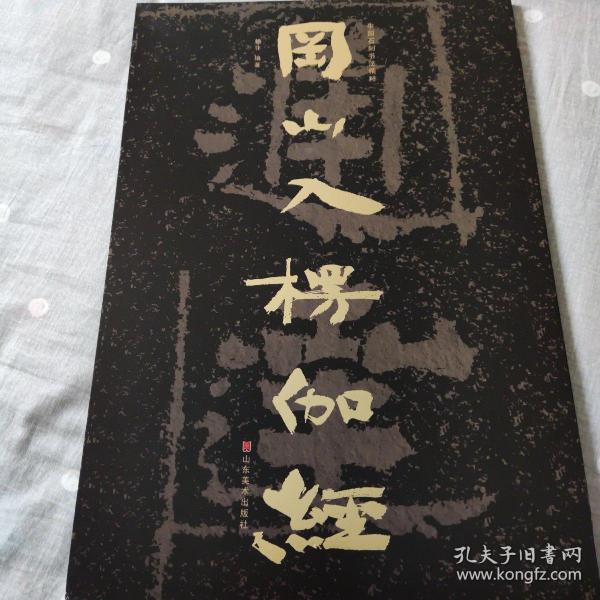 中国石刻书法精粹
岡山入楞伽經
山东美术出版社
孔夫子旧書网
www.kongfz.com